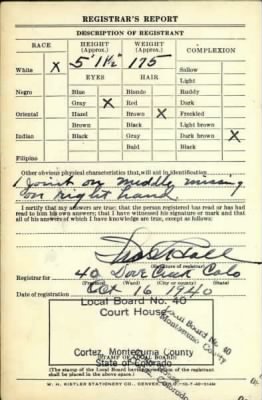 REGISTRAR'S REPORT
DESCRIPTION OF REGISTRANT
RACE
HEIGHT (Approx.)
WEIGHT (Approx.)
COMPLEXION
White X
5' 1½"
175
Sallow
EYES
HAIR
Light
Negro
Blue
Blonde
Ruddy
Gray X
Red
Dark
Oriental
Hazel
Brown X
Freckled
Brown
Black
Light brown
Indian
Black
Gray
Dark brown X
Bald
Black
Filipino
Other obvious physical characteristics that will aid in identification
1 Joint on middle missing
on right hand
I certify that my answers are true; that the person registered has read or has had
read to him his own answers; that I have witnessed his signature or mark and that
all of his answers of which I have knowledge are true, except as follows:
(Signature of registrar)
Registrar for 40 Dove Creek Colo
(Precinct) (Ward) (City or county) (State)
Date of registration Oct 16 1940
Local Board No. 40
Court House
Cortez, Montezuma County
State of Colorado
Local Board No. 40
Montezuma County
Colorado
(STAMP OF LOCAL BOARD)
(The stamp of the Local Board having jurisdiction of the registrant
shall be placed in the above space.)
W. H. KISTLER STATIONERY CO., DENVER, COLO.